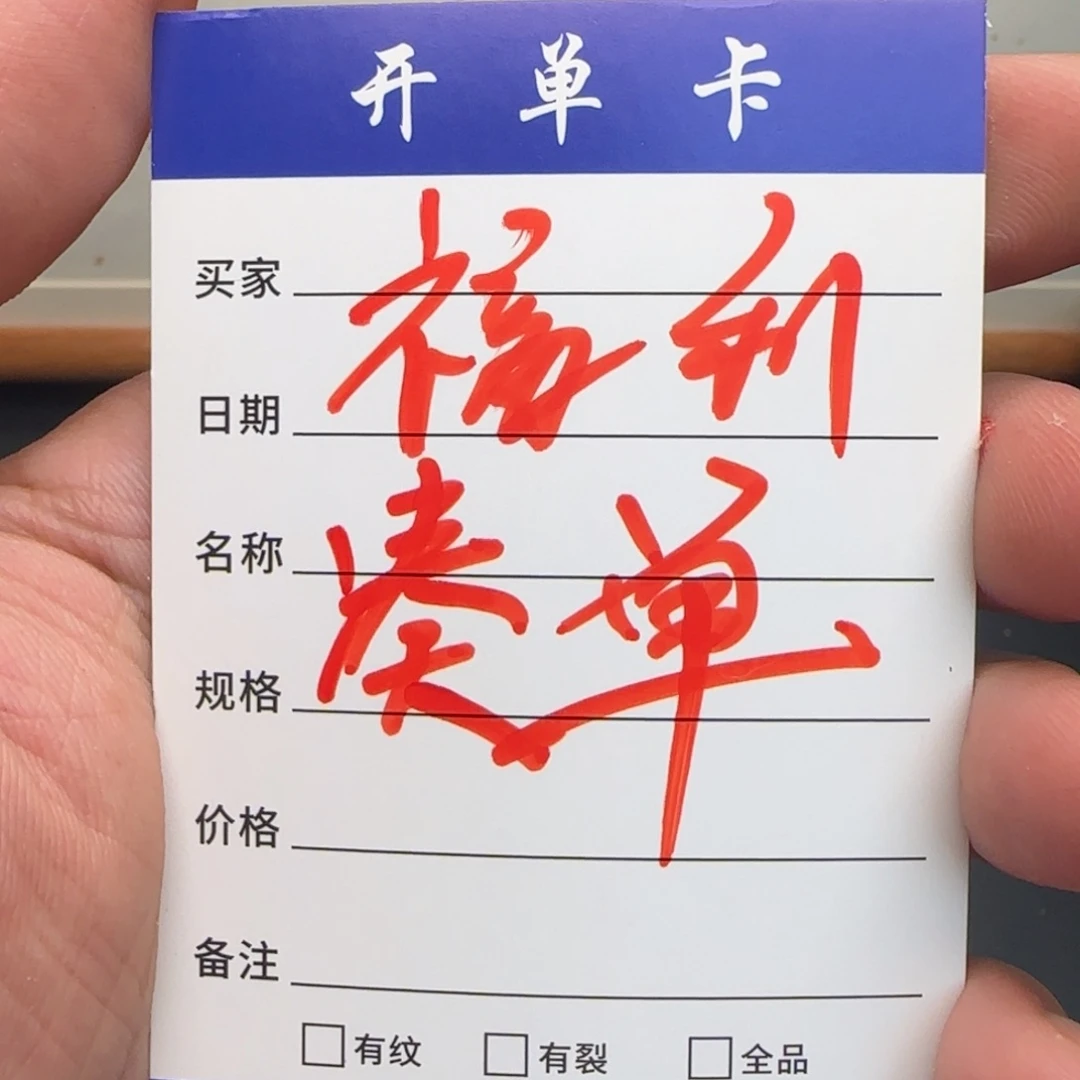 开单卡
买家
福利
日期
名称
凑单
规格
价格
备注
有纹 有裂 全品